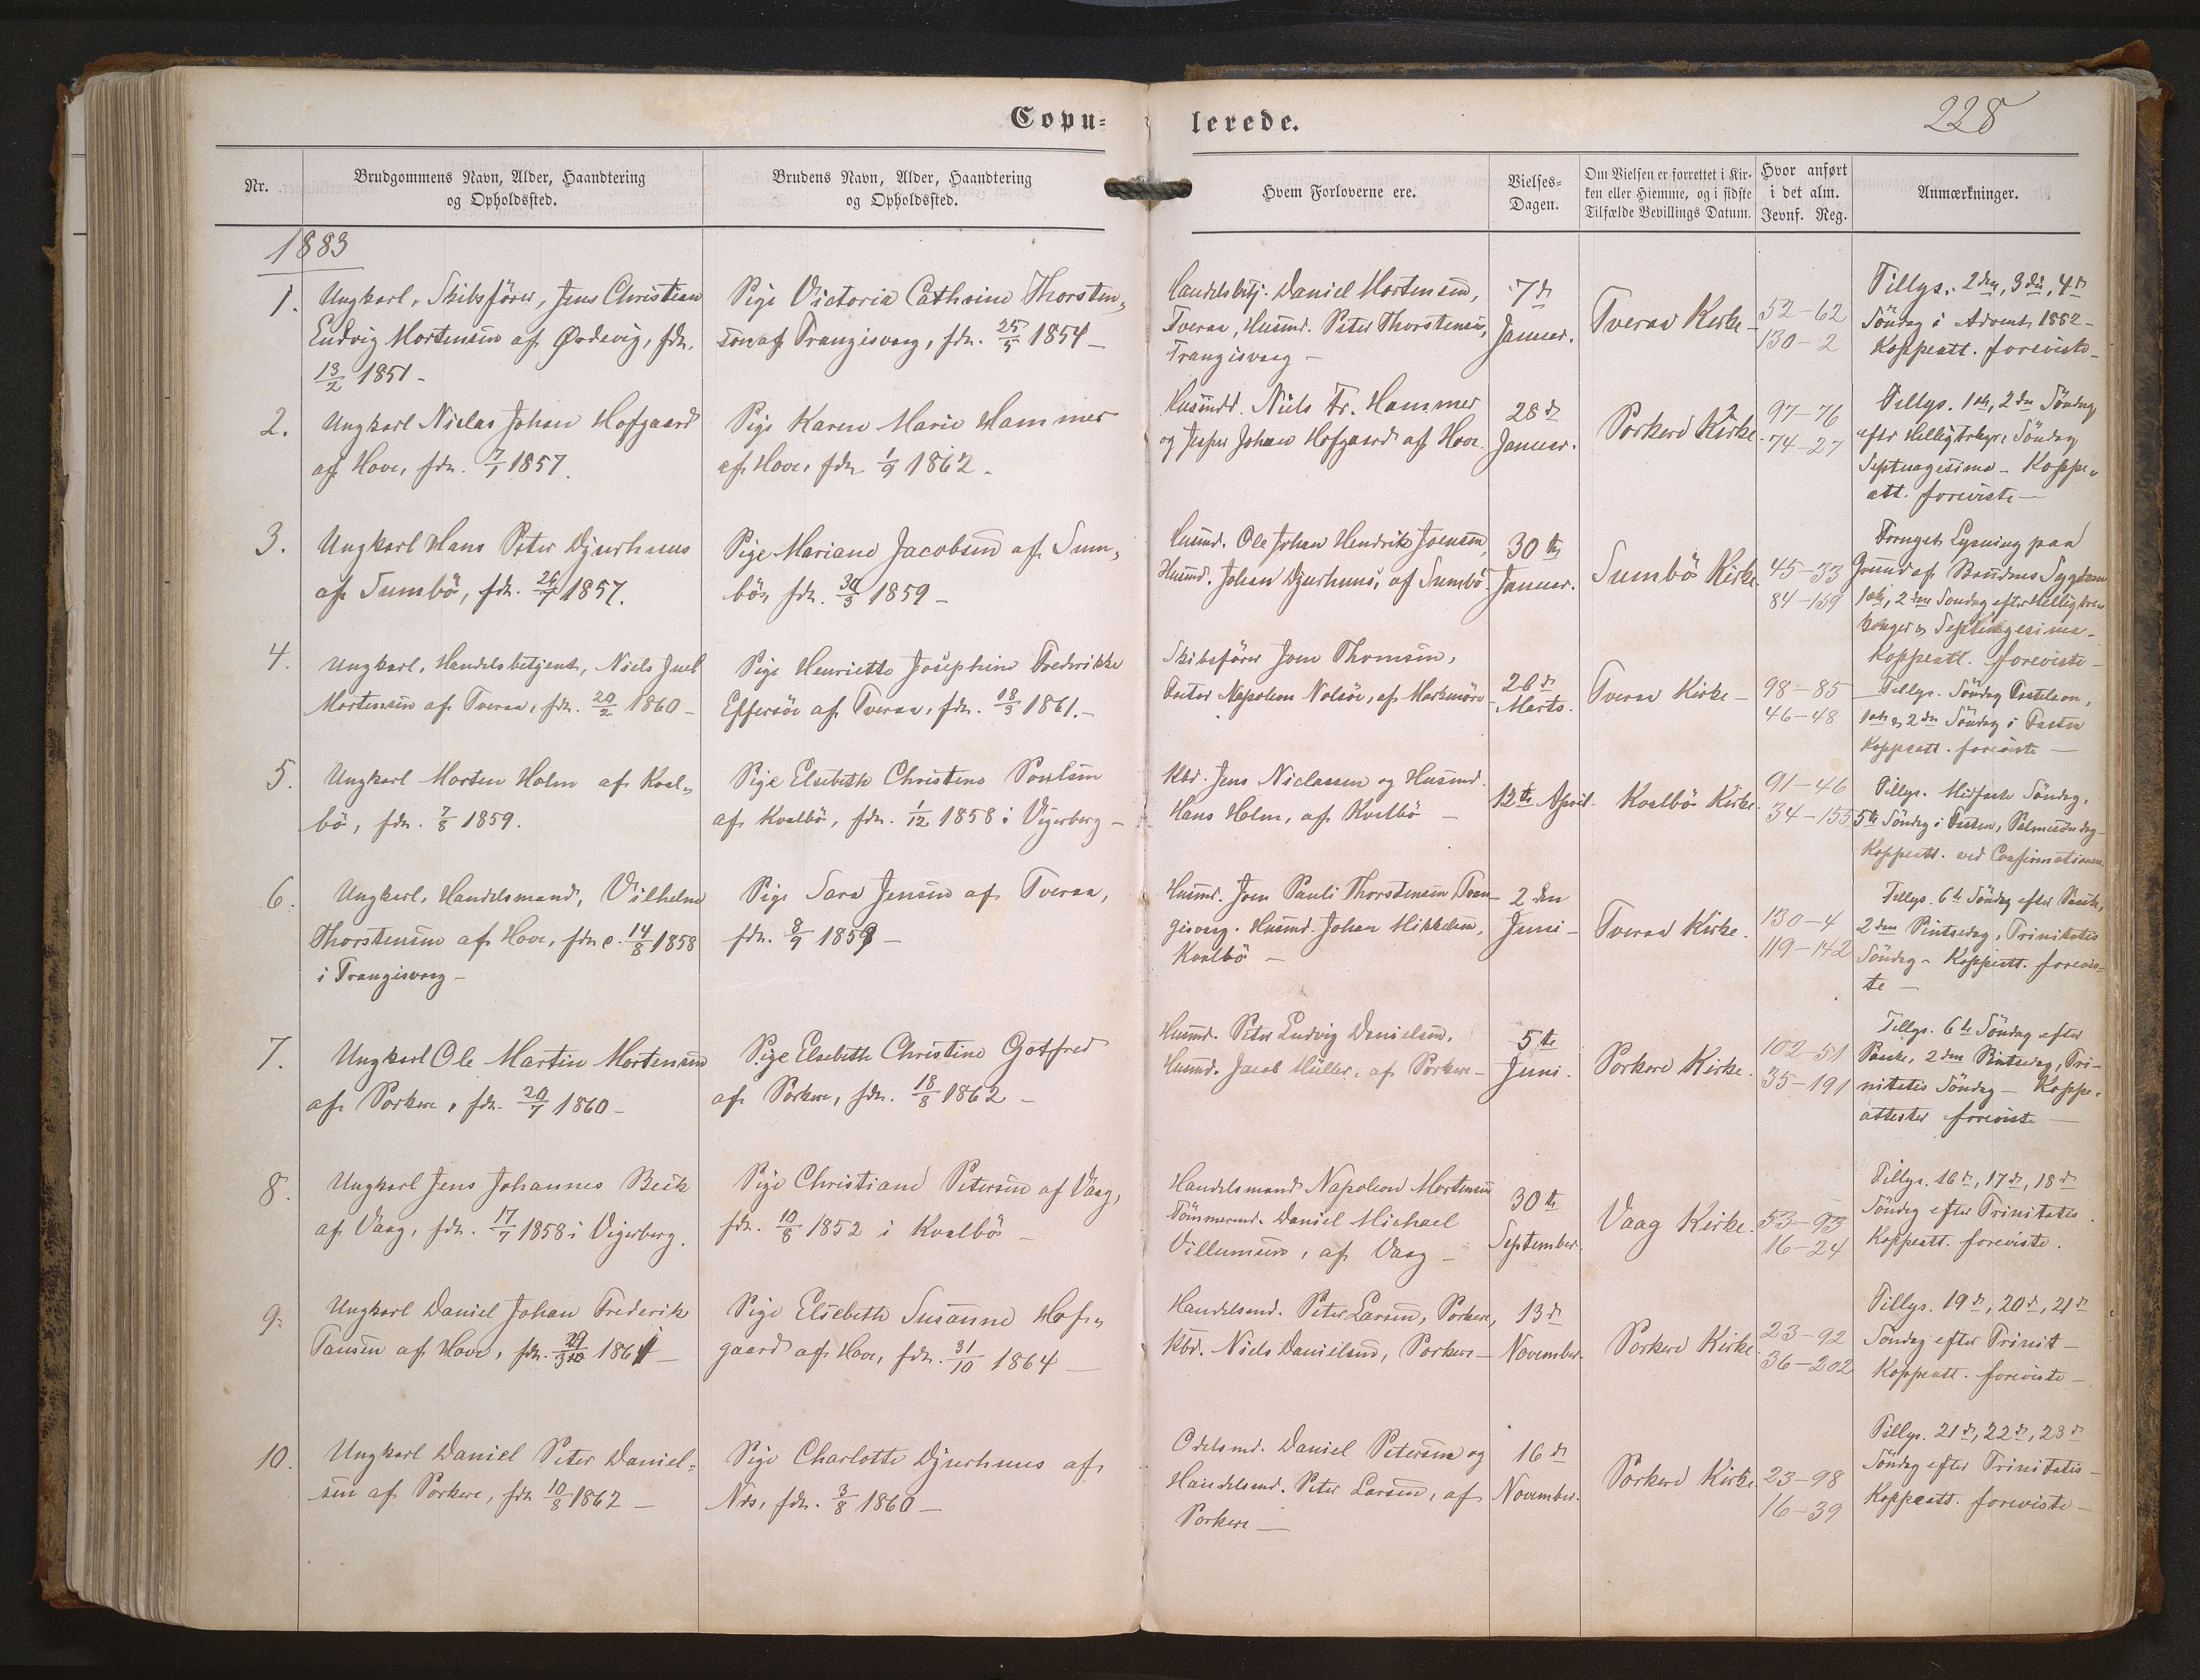 Copu= lerede.
228
Nr.
Brudgommens Navn, Alder, Haandtering
og Opholdssted.
Brudens Navn, Alder, Haandtering
og Opholdssted.
Hvem Forloverne ere.
Vielses-
Dagen.
Om Vielsen er forrettet i Kir-
ken eller Hiemme, og i sidste
Tilfælde Bevillings Datum.
Hvor anført
i det alm.
Jevnf. Reg.
Anmærkninger.
1883
1.
Ungkarl, Skibsfører, Jens Christian
Ludvig Mortensen af Ørdevig, fdt.
13/2 1851-
Pige Victoria Cathrine Thorsten,
sen af Trangisvaag, fdt. 25/5 1854-
Handelsbetj. Daniel Mortensen,
Tveraa, Husmd. Peter Thorstensen,
Trangisvaag -
7d
Januar.
Tveraa Kirke-
52-62
130-2
Tillys. 2den, 3die, 4de
Söndag i Advent 1882-
Koppeatt. foreviste-
2.
Ungkarl Niclas Johan Hofgaard
af Hove, fdt. 7/1 1857.
Pige Karen Marie Hammer
af Hove, fdt. 1/9 1862-
Husmd. Niels Fr. Hammer
og Jesper Johan Hofgaard af Hove.
28d
Januar.
Porkere Kirke.
97-76
74-27
Tillys. 1ste, 2den Söndag
efter Helligtrekgr. Söndag
Septuagesima - Koppe,
att. foreviste-
3.
Ungkarl Hans Peter Djurhuus
af Sumbö, fdt. 26/7 1857.
Pige Mariane Jacobsen af Sum,
bö, fdt. 30/3 1859-
Husmd. Ole Johan Hendrik Joensen,
Husmd. Johan Djurhuus, af Sumbö.
30te
Januar.
Sumbö Kirke
45-33
84-159
Tvungst. Lysning paa
Grund af Brudens Sygdom
1ste, 2den Söndag efter Hellig tre
konger og Septuagesima-
Koppeatt. foreviste-
4.
Ungkarl, Handelsbetjent, Niels Juel
Mortensen af Tveraa, fdt. 20/2 1860-
Pige Henriette Josephine Frederikke
Effersöe af Tveraa, fdt. 18/3 1861.-
Skibsfører Joen Thomsen,
Factor Napoleon Nolsöe, af
28d
Marts.
Tveraa Kirke-
98-85
46-48
Tillys. Söndag Fastelavn,
1ste og 2den Söndag i Fasten
Koppeatt. foreviste-
5.
Ungkarl Morten Holm af Kval,
bö, fdt. 7/8 1859.
Pige Elsebeth Christine Poulsen
af Kvalbö, fdt. 1/12 1858 i Vigerberg-
Kbd. Jens Niclassen og Husmd.
Hans Holm, af Kvalbö-
12te April-
Kvalbö Kirke.
91-46
34-155
Tillys. Midfaste Söndag,
5te Söndag i Fasten, Palmesöndag-
Koppeatt. ved Confirmationen.
6.
Ungkarl, Handelsmand, Vilhelm
Thorstensen af Hove, fdt. 14/8 1858
i Trangisvaag-
Pige Sara Jensen af Tveraa,
fdt. 8/9 1859-
Husmd. Joen Pauli Thorstensen Tran-
gisvaag. Husmd. Johan Mikkelsen,
Kvalbö-
2 den
Juni-
Tveraa Kirke.
130-4
119-142
Tillys. 6te Söndag efter Paaske,
2den Pintsedag, Trinitatis
Söndag- Koppeatt. forevis-
te-
7.
Ungkarl Ole Martin Mortensen
af Porkere, fdt. 20/7 1860-
Pige Elsebeth Christine Gotfred
af Porkere, fdt. 18/8 1862-
Husmd. Peter Ludvig Danielsen,
Husmd. Jacob Müller, af Porkere-
5te
Juni.
Porkere Kirke.
102-51
35-191
Tillys. 6te Söndag efter
Paaske, 2den Pintsedag, Tri-
nitatis Söndag- Koppe,
attester foreviste-
8.
Ungkarl Jens Johannes Beck
af Vaag, fdt. 17/7 1858 i Vigerberg.
Pige Christiane Petersen af Vaag,
fdt. 10/8 1852 i Kvalbö-
Handelsmand Napoleon Mortensen
Tömmermd. Daniel Michael
Villumsen, af Vaag-
30te
September.
Vaag Kirke.
53-93
16-24
Tillys. 16d, 17d, 18d
Söndag efter Trinitatis
Koppeatt. foreviste.
9.
Ungkarl Daniel Johan Frederik
Tausen af Hove, fdt. 29/10 1861-
Pige Elsebeth Susanne Hof,
gaard af Hove, fdt. 31/10 1864-
Handelsmd. Peter Larsen, Porkere,
Kbd. Niels Danielsen, Porkere-
13d
November.
Porkere Kirke.
23-92
36-202
Tillys. 19d, 20d, 21d
Söndag efter Trinit-
Koppeatt. foreviste-
10.
Ungkarl Daniel Peter Daniel=
sen af Porkere, fdt. 10/8 1862-
Pige Charlotte Djurhuus af
Nes, fdt. 3/8 1860-
Odelsmd. Daniel Petersen og
Handelsmd. Peter Larsen, af
Porkere-
16d
November.
Porkere Kirke
23-98
16-39
Tillys. 21d, 22d, 23d
Söndag efter Trinitatis-
Koppeatt. foreviste-